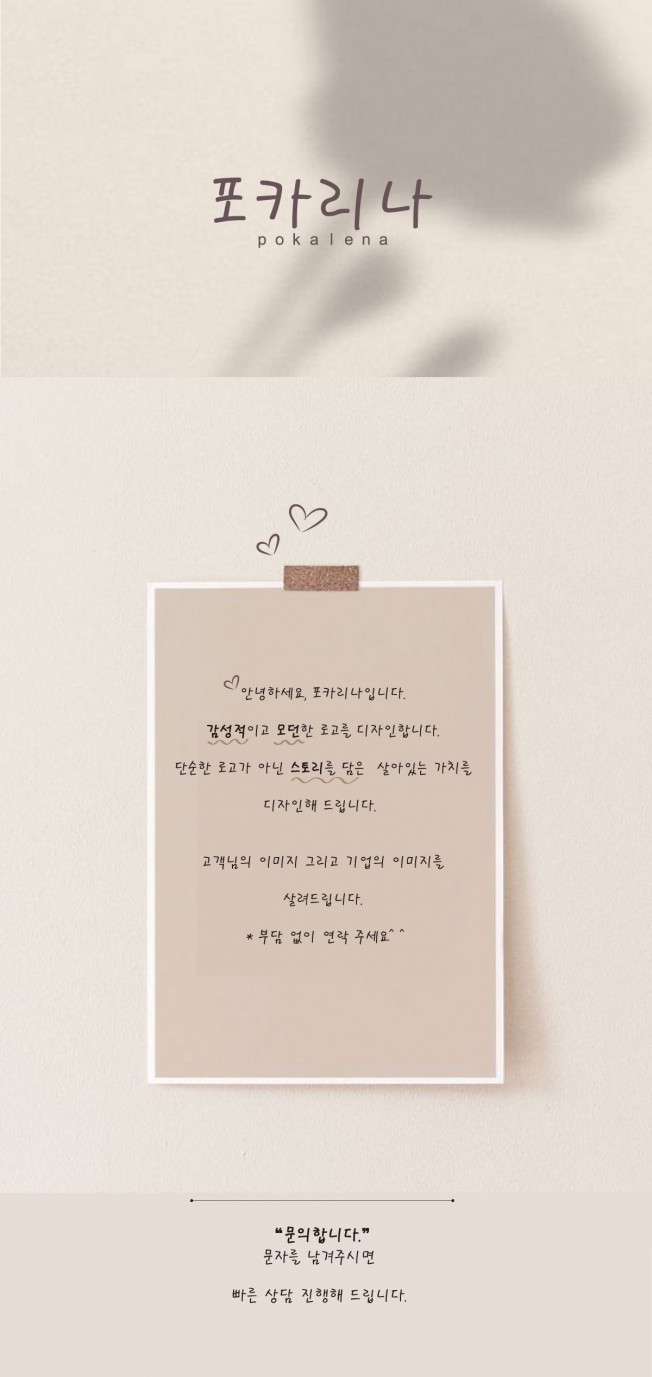 포카리나
pokalena
안녕하세요, 포카리나입니다.
감성적이고 모던한 로고를 디자인합니다.
단순한 로고가 아닌 스토리를 담은 살아있는 가치를
디자인해 드립니다.
고객님의 이미지 그리고 기업의 이미지를
살려드립니다.
* 부담 없이 연락 주세요^^
“문의합니다.”
문자를 남겨주시면
빠른 상담 진행해 드립니다.